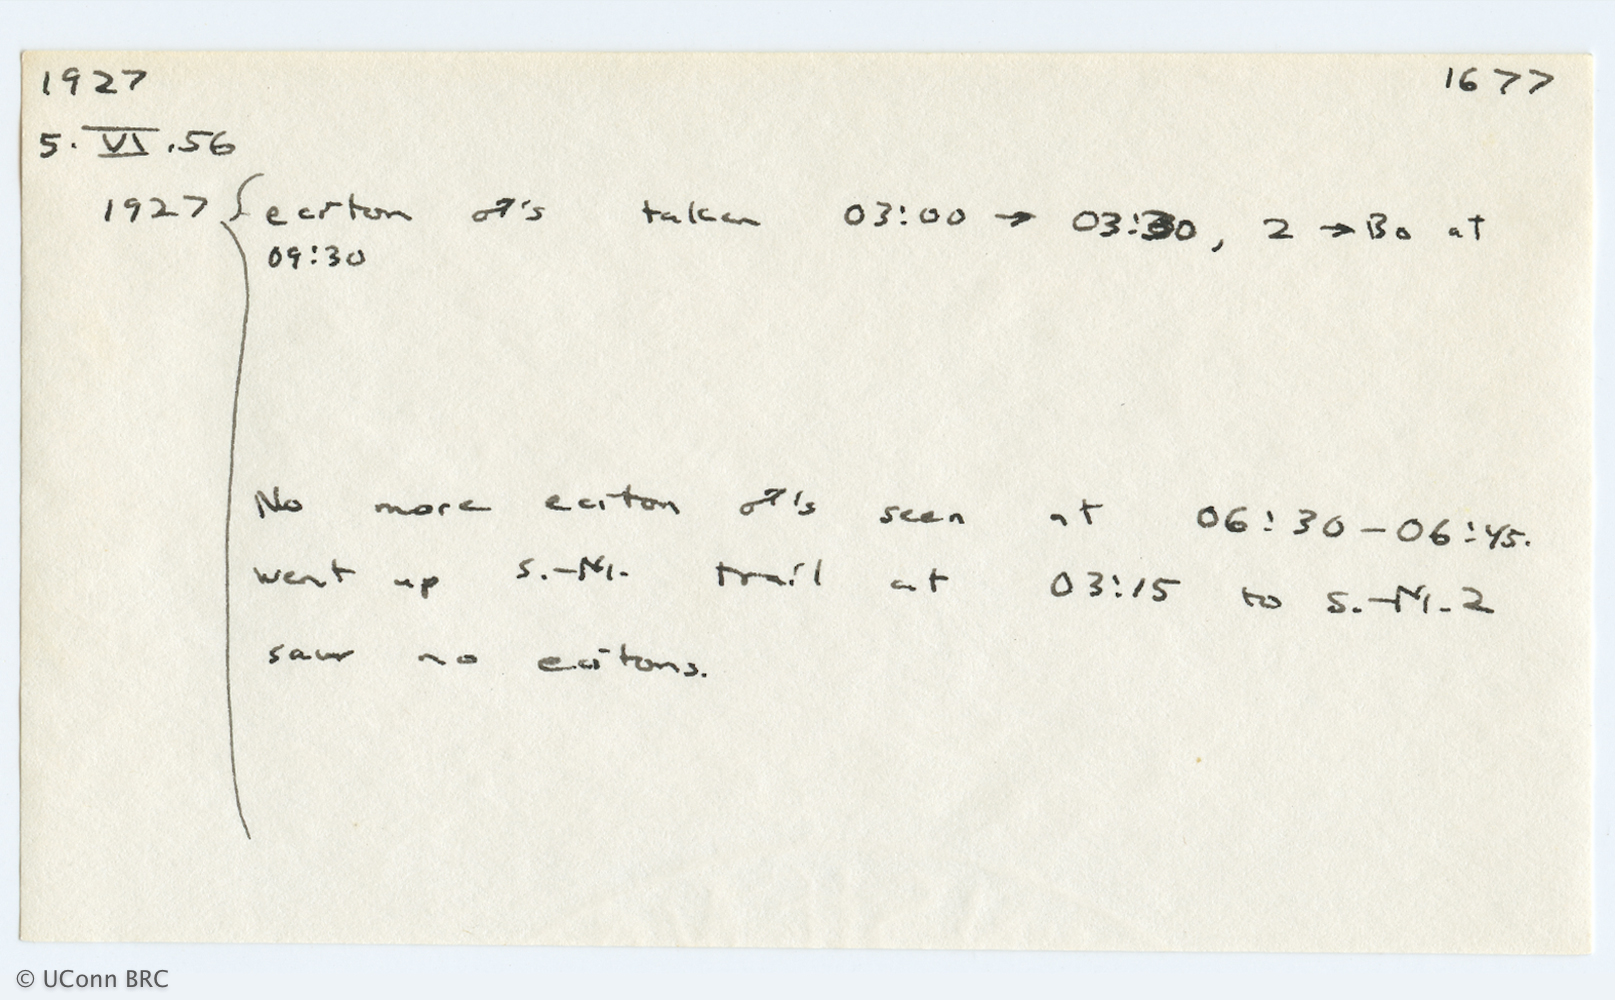 1927 1677
5.VI.56
1927 { eciton ♂'s taken 03:00 → 03:30, 2 → Bo at
09:30
No more eciton ♂'s seen at 06:30-06:45.
went up S.-M. trail at 03:15 to S.-M.2
saw no ecitons.
© UConn BRC